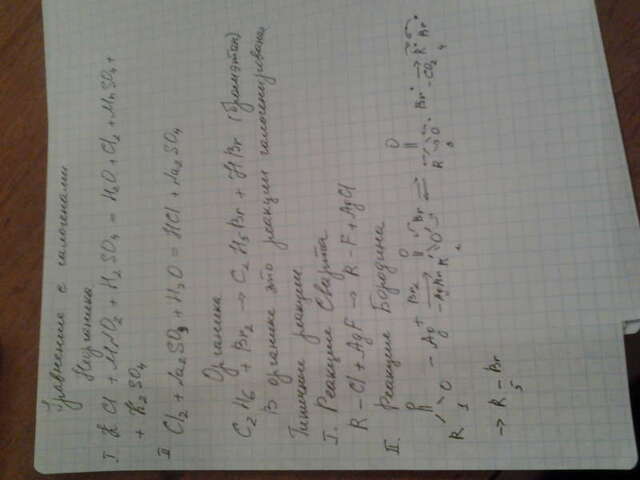 Уравнение с галогенами
Неорганика
I K Cl + MnO2 + H2SO4 = H2O + Cl2 + MnSO4 +
+ K2SO4
II Cl2 + Na2SO3 + H2O = HCl + Na2SO4
Органика
C2H6 + Br2 → C2H5Br + HBr (бромэтан)
В органике это реакции галогенирования
Типичные реакции
I. Реакция Свартса
R - Cl + AgF → R - F + AgCl
II. Реакция Бородина
R O - Ag + Br2 → - AgBr R O Br ⇌ R O Br → - CO2 R Br
1 2 3 4
→ R - Br
5